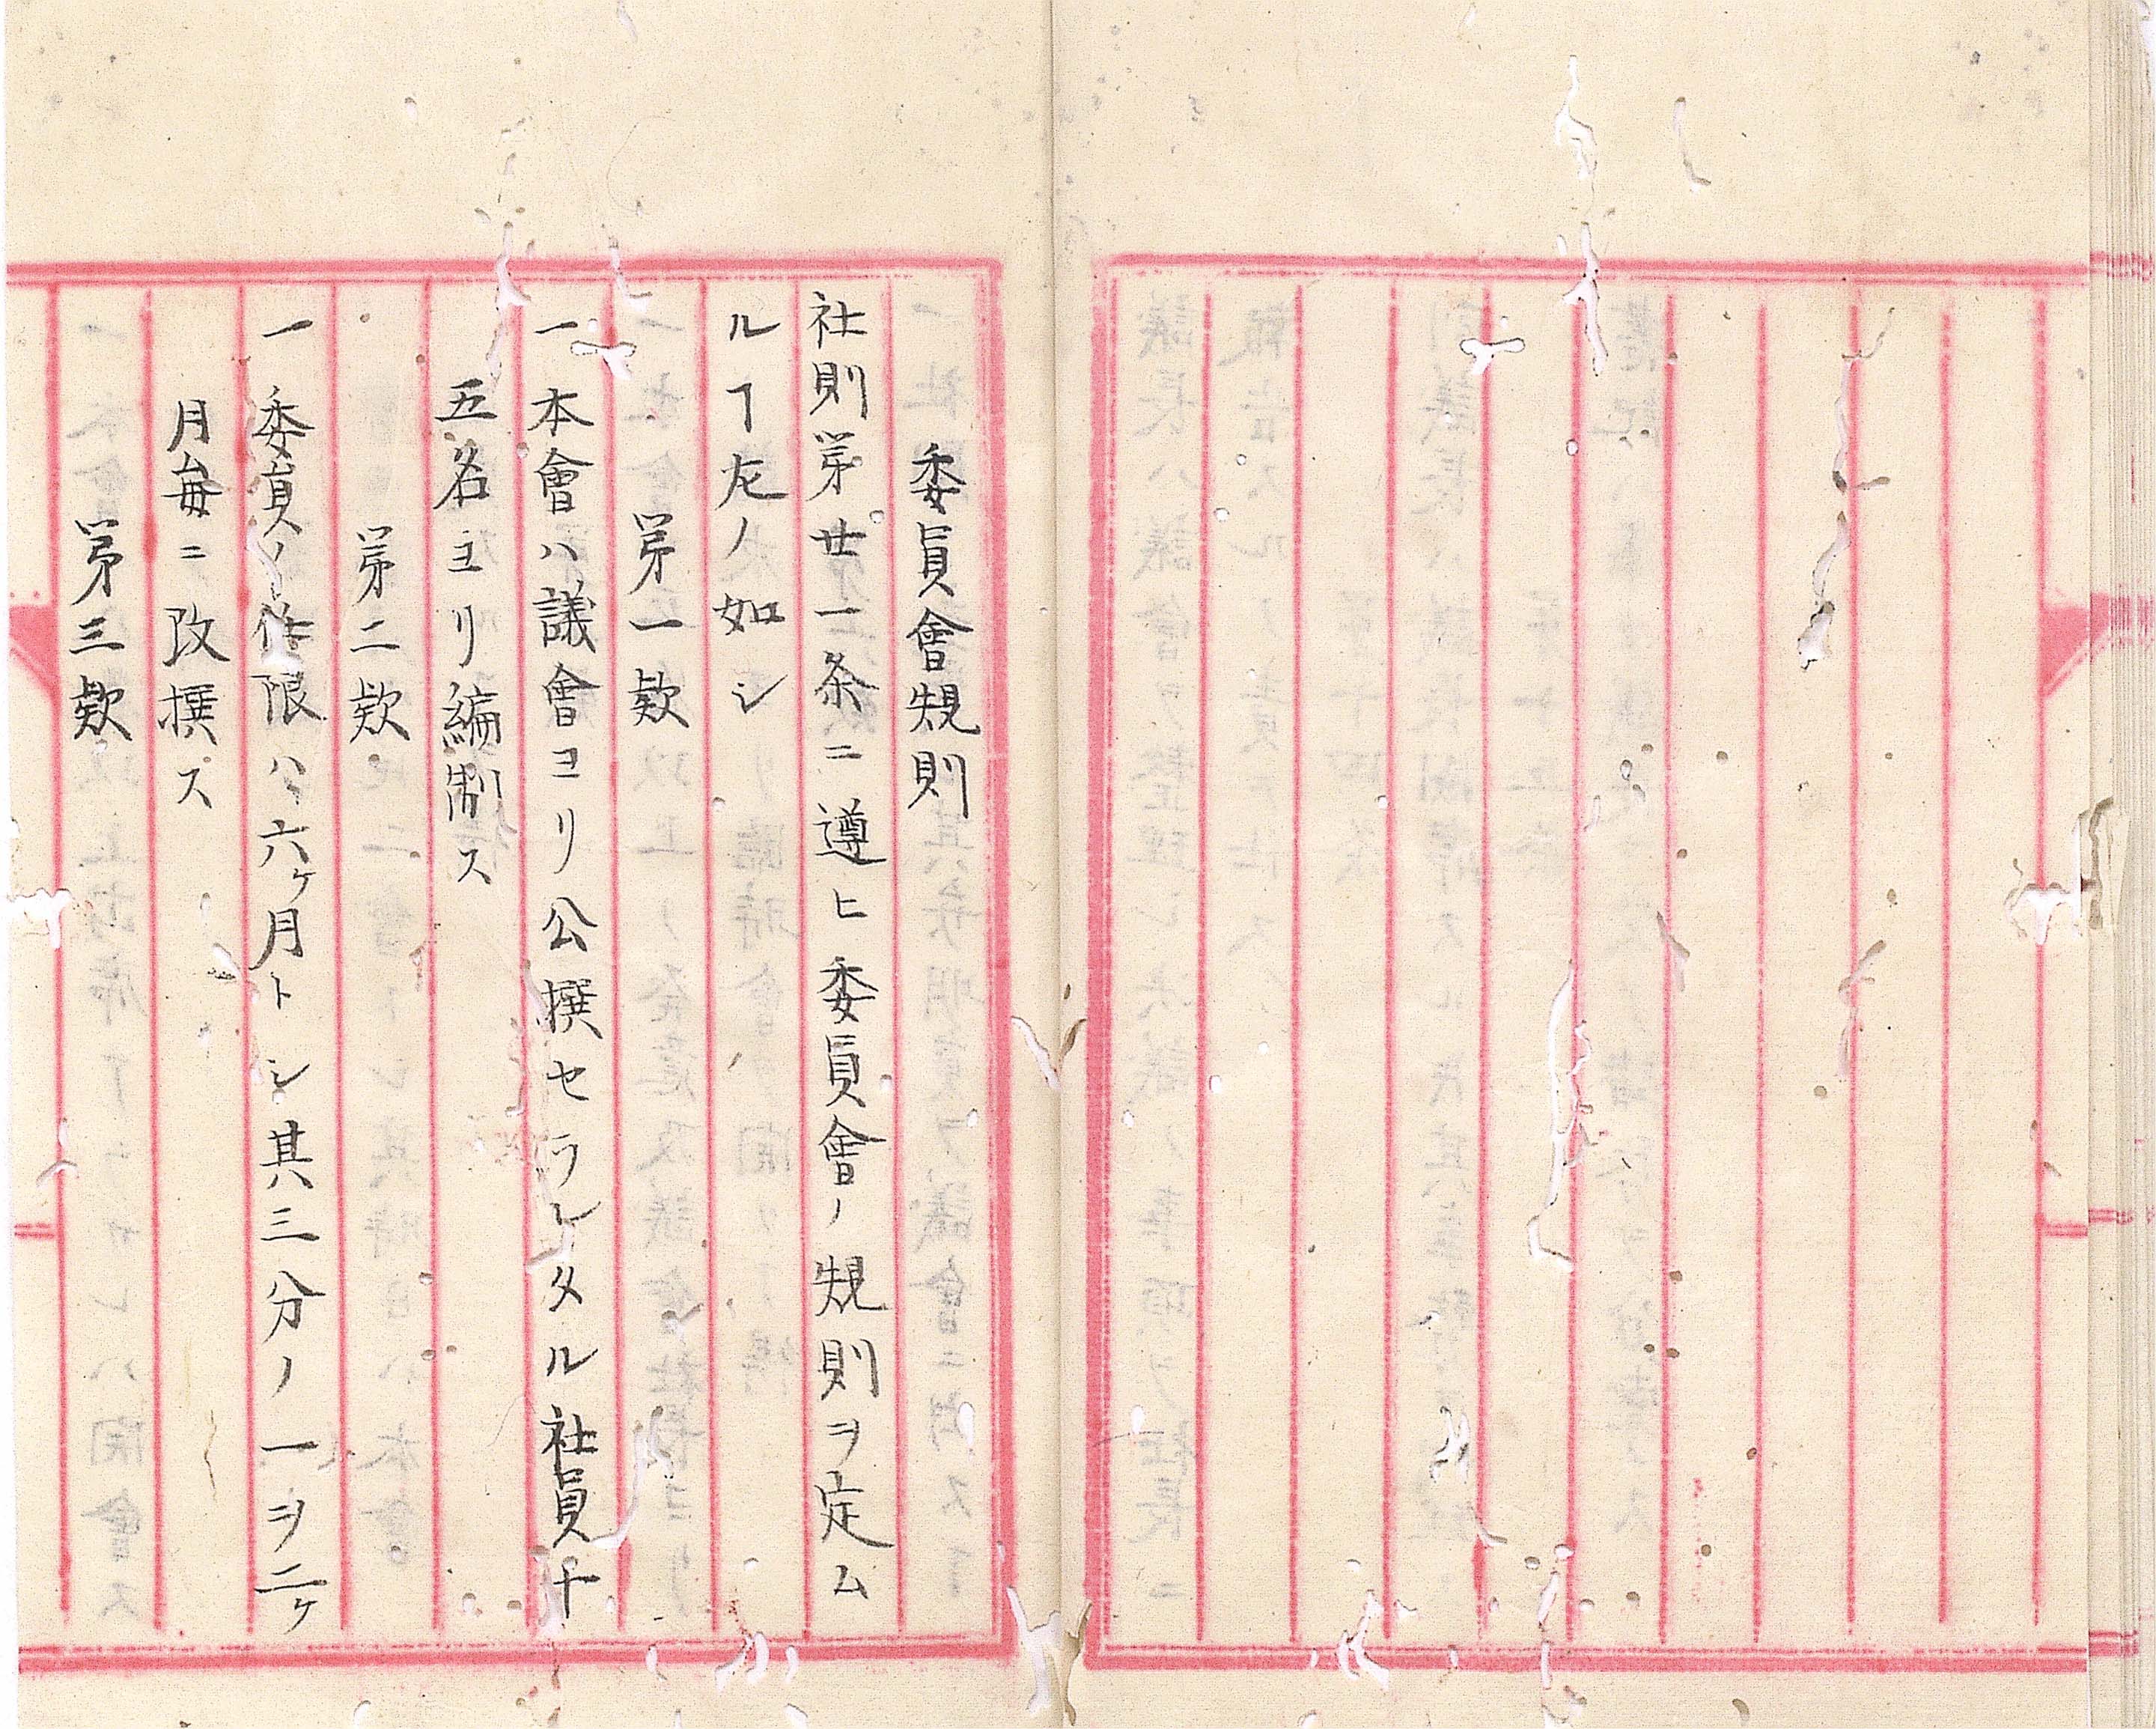 委員會規則
社則第廿一条ニ遵ヒ委員會ノ規則ヲ定ム
ルヿ左ノ如シ
第一款
一本會ハ議會ヨリ公撰セラレタル社員十
五名ヨリ編制ス
第二款
一委員ノ任限ハ六ケ月トシ其三分ノ一ヲ二ケ
月毎ニ改撰ス
第三款